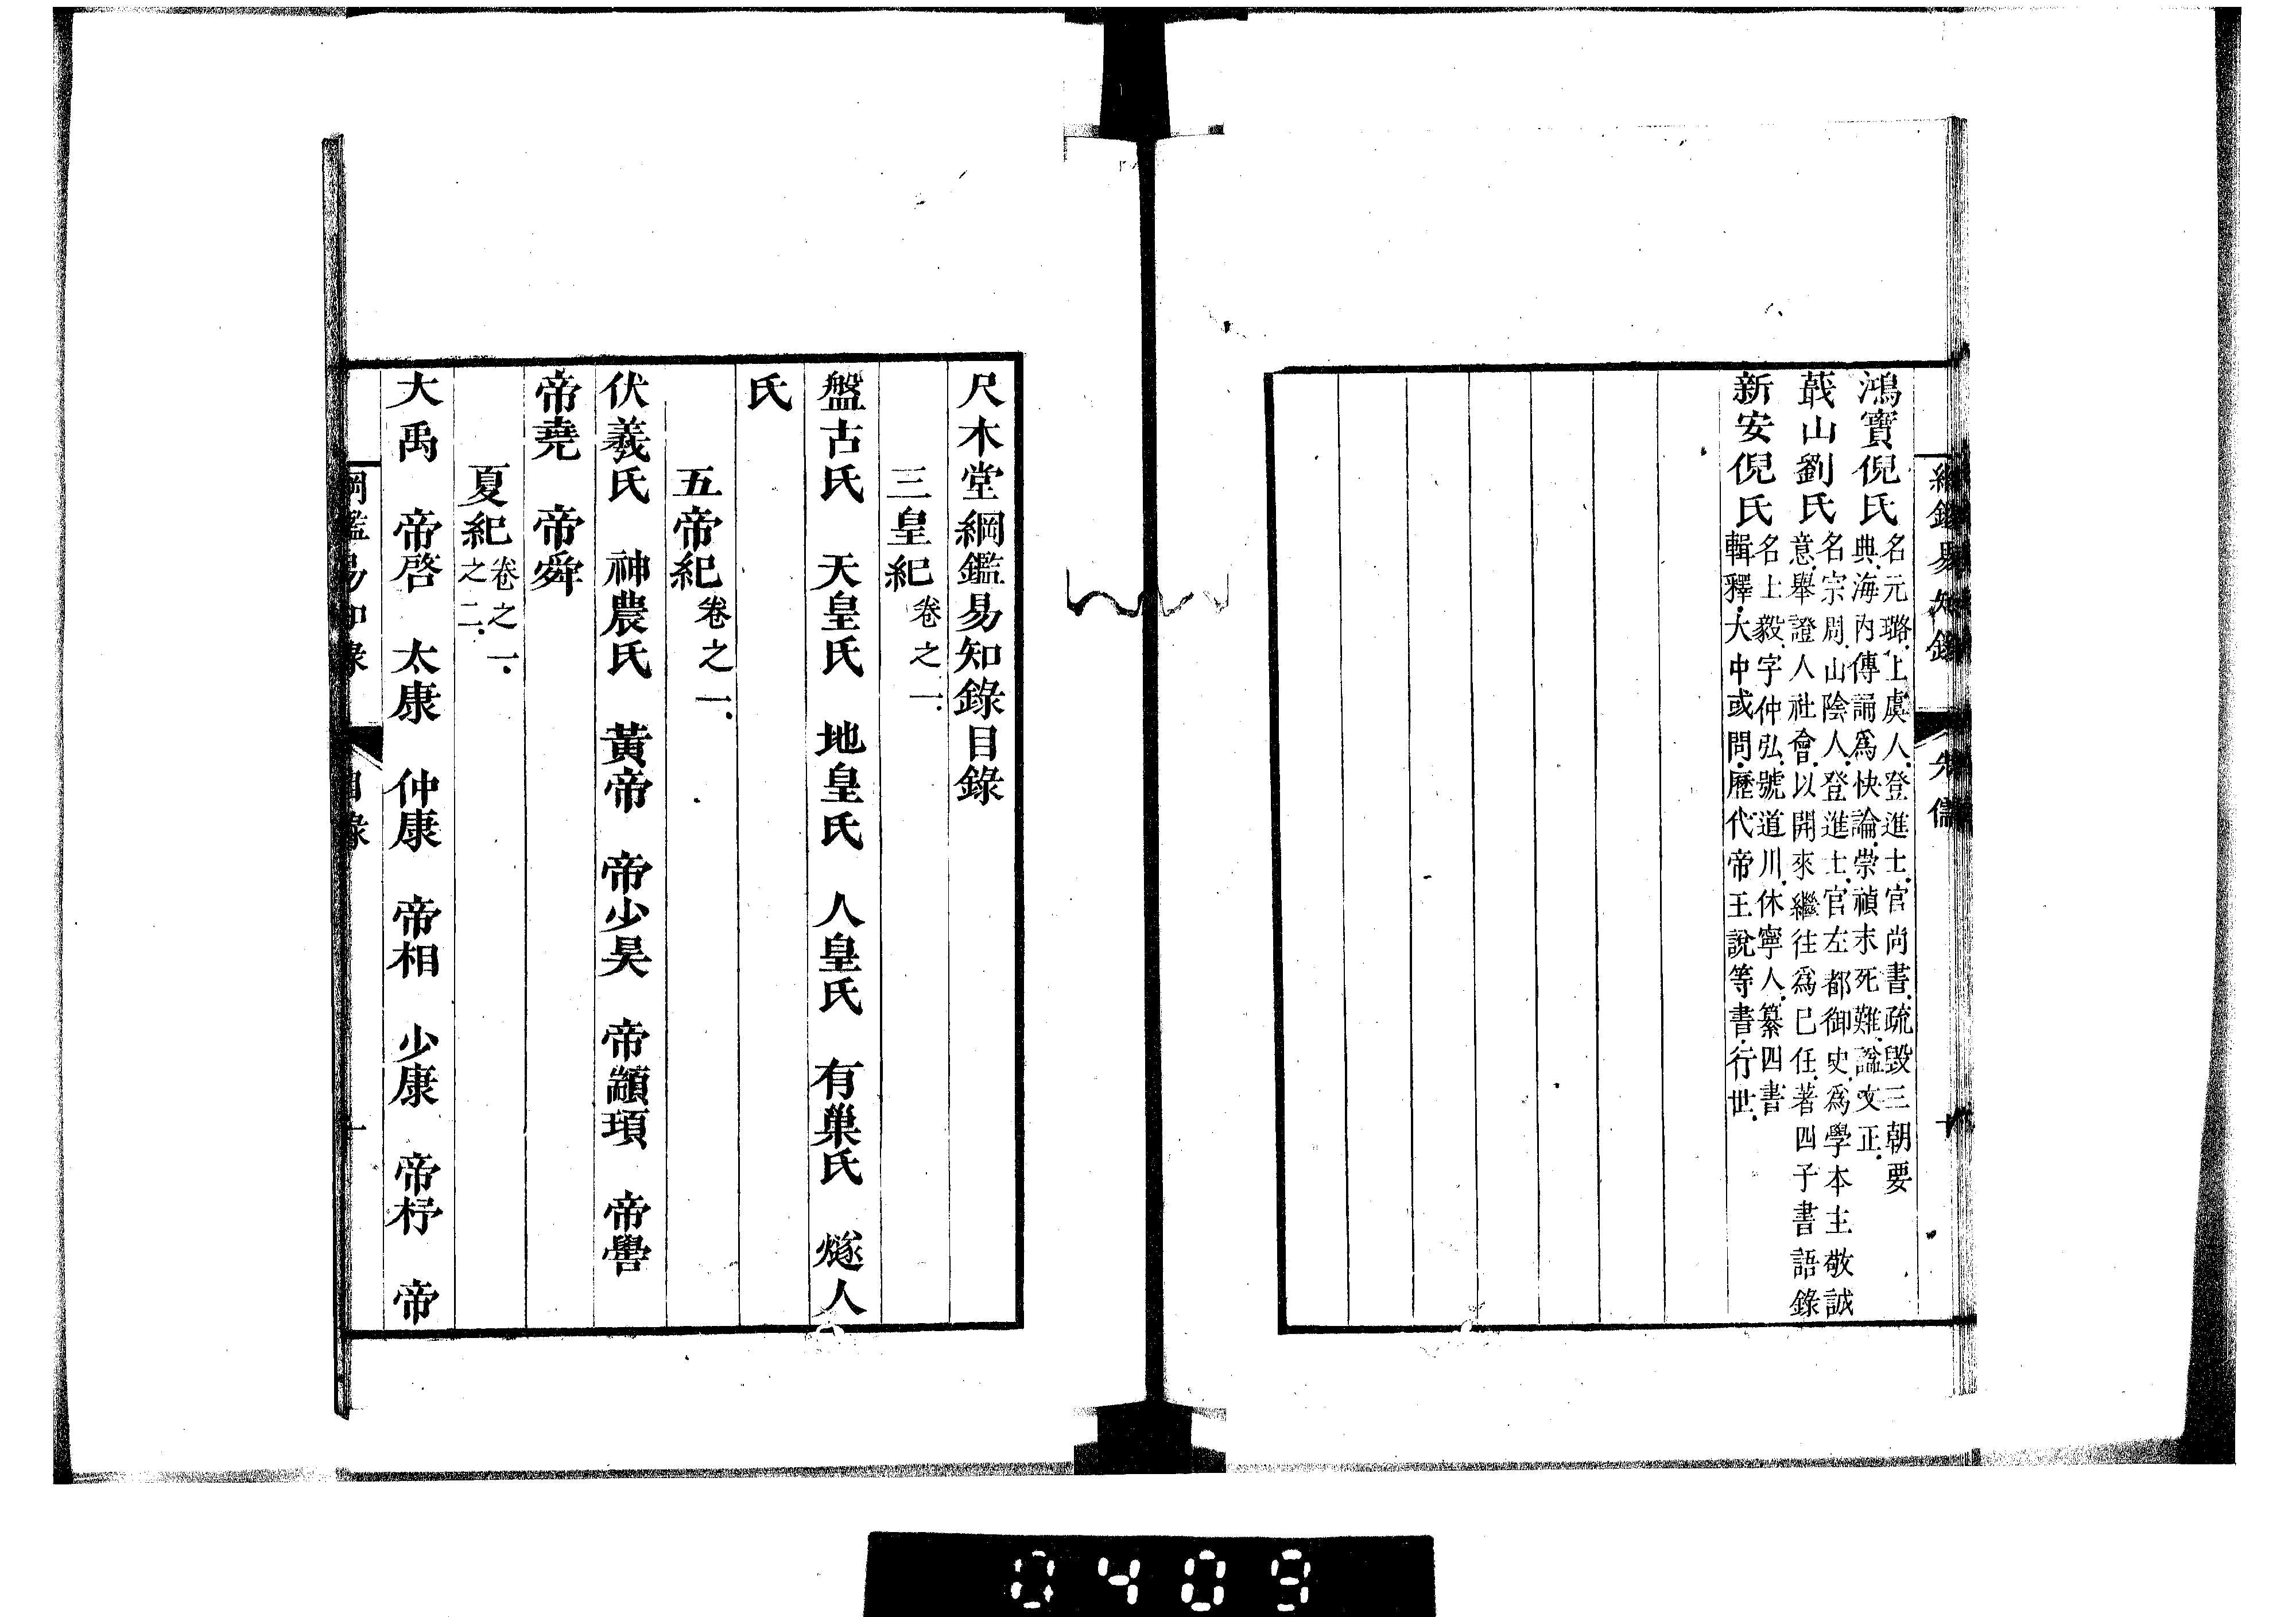 綱鑑易知錄 先儒 十
鴻寶倪氏 名元璐.上虞人.登進士.官尚書.疏毀三朝要
典.海內傳誦爲快論.崇禎末死難.諡文正.
蕺山劉氏 名宗周.山陰人.登進士.官左都御史.爲學本主敬誠
意.舉證人社會.以開來繼往爲己任.著四子書語錄
新安倪氏 名士毅.字仲弘.號道川.休寧人.纂四書
輯釋.大中或問.歷代帝王說等書.行世.
尺木堂綱鑑易知錄目錄
三皇紀 卷之一.
盤古氏 天皇氏 地皇氏 人皇氏 有巢氏 燧人
氏
五帝紀 卷之一.
伏羲氏 神農氏 黃帝 帝少昊 帝顓頊 帝嚳
帝堯 帝舜
夏紀 卷之一.
之二.
大禹 帝啓 太康 仲康 帝相 少康 帝杼 帝
綱鑑易知錄 目錄 一
0409